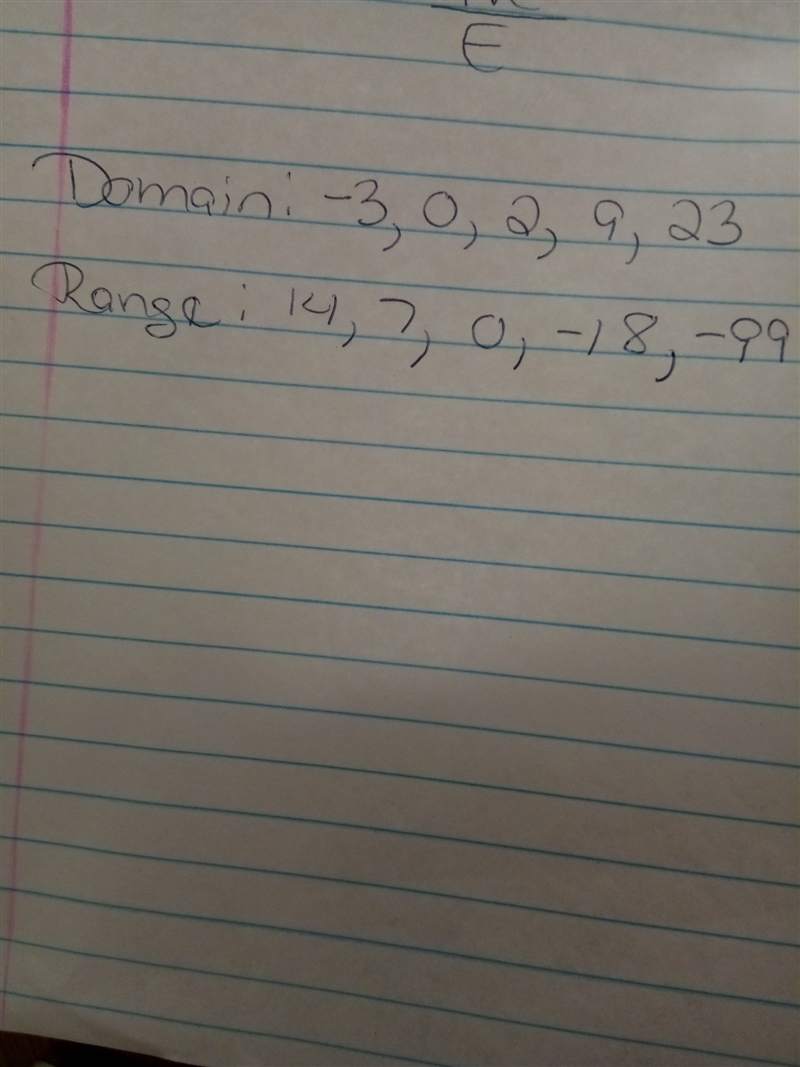 E
Domain: -3, 0, 2, 9, 23
Range: 14, 7, 0, -18, -99